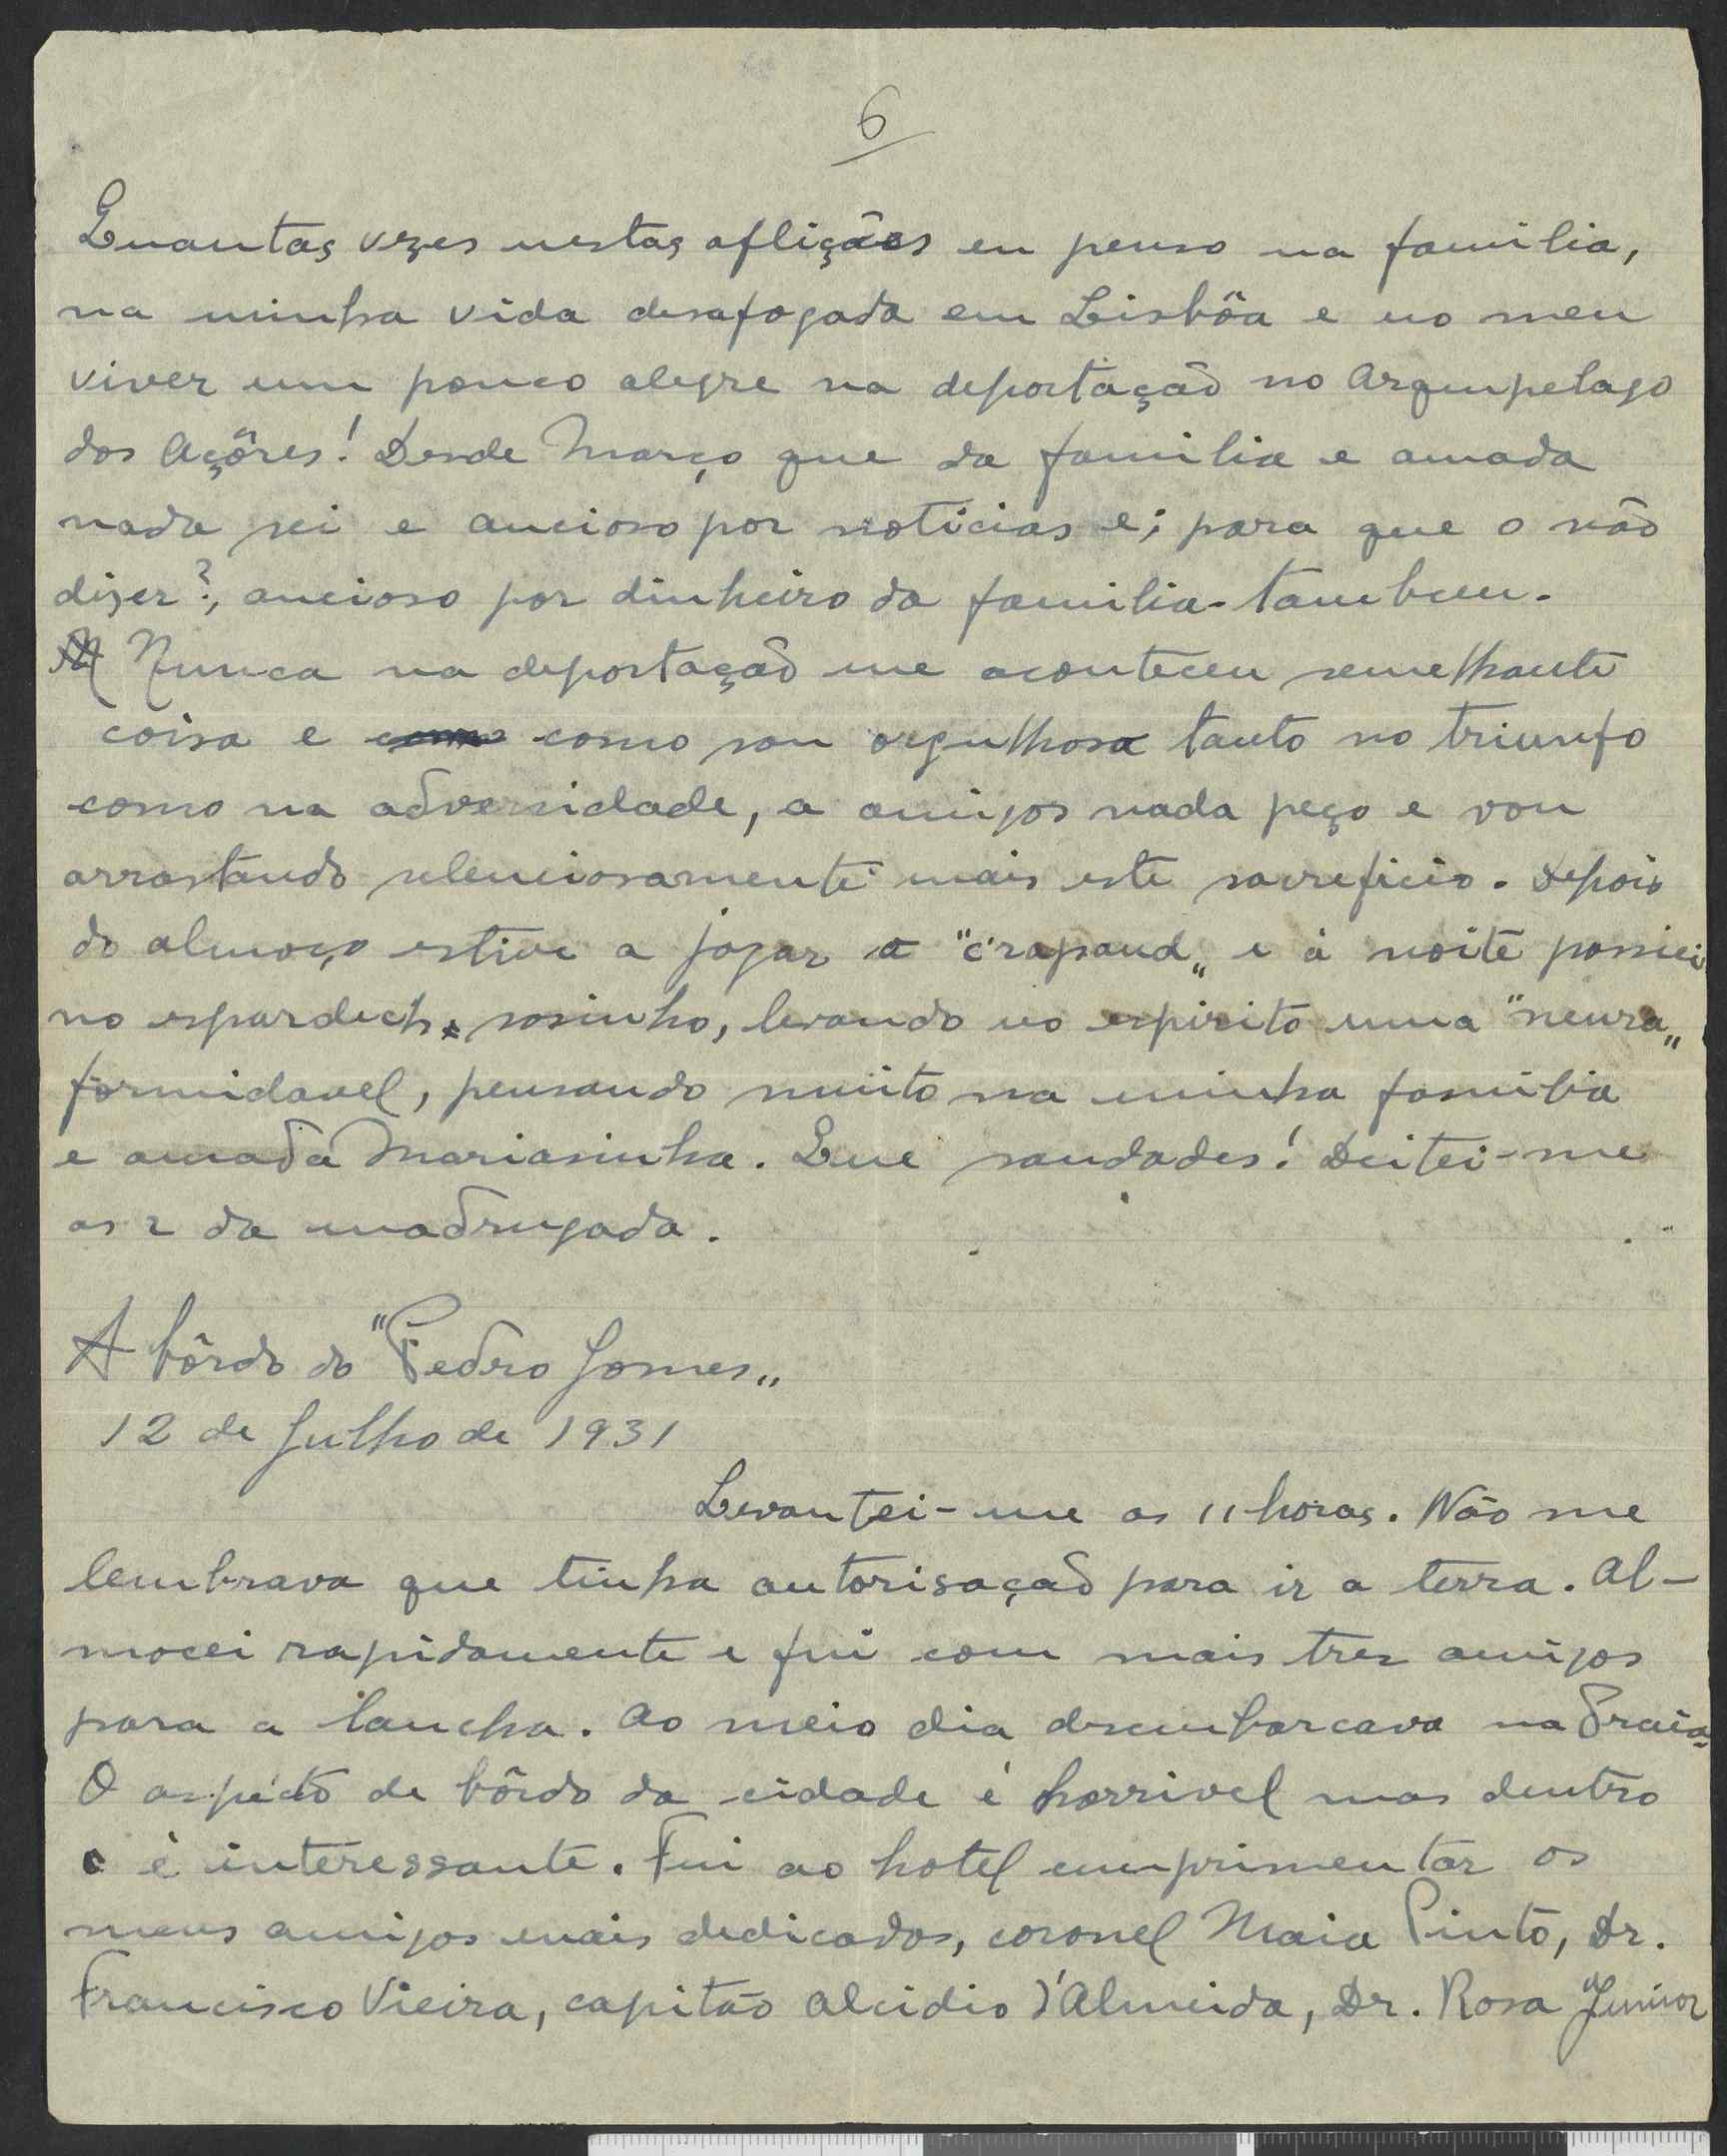 6
Quantas vezes nestas aflições eu penso na familia,
na minha vida desafogada em Lisbôa e no meu
viver um pouco alegre na deportação no Arquipelago
dos Açôres! Desde Março que da familia e amada
nada sei e ancioso por noticias e; para que o não
dizer?, ancioso por dinheiro da familia tambem.
Nunca na deportação me aconteceu semelhante
coisa e como sou orgulhoso tanto no triunfo
como na adversidade, a amigos nada peço e vou
arrostando selenciosamente mais este sacreficio. Depois
do almoço estive a jogar a "crapaud" e á noite passiei
no espardech, sosinho, levando no espirito uma "neura"
formidavel, pensando muito na minha familia
e amada Mariasinha. Que saudades! Deitei-me
as 2 da madrugada.
A bôrdo do "Pedro Gomes"
12 de Julho de 1931
Levantei-me as 11 horas. Não me
lembrava que tinha autorisação para ir a terra. Al-
mocei rapidamente e fui com mais tres amigos
para a lancha. Ao meio dia desembarcava na Praia.
O aspécto de bôrdo da cidade é horrivel mas dentro
é interessante. Fui ao hotel cumprimentar os
meus amigos mais dedicados, coronel Maia Pinto, Dr.
Francisco Vieira, capitão Alcidio d'Almeida, Dr. Rosa Junior